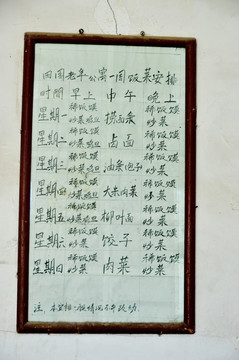 田园老年公寓一周饭菜安排
时间 早上 中午 晚上
星期一 稀饭馍 炒菜咸豆 捞面条 稀饭馍 炒菜
星期二 稀饭馍 炒菜 卤面 稀饭馍 炒菜
星期三 稀饭馍 炒菜 油条包子 稀饭馍 炒菜
星期四 稀饭馍 炒菜 大米肉菜 稀饭馍 炒菜
星期五 稀饭馍 炒菜 柳叶面 稀饭馍 炒菜
星期六 稀饭馍 炒菜 饺子 稀饭馍 炒菜
星期日 稀饭馍 炒菜 肉菜 稀饭馍 炒菜
注 本安排一般情况不予改动